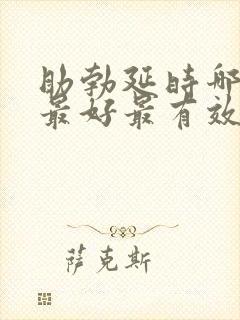 助勃延时哪
最好最有效
萨克斯